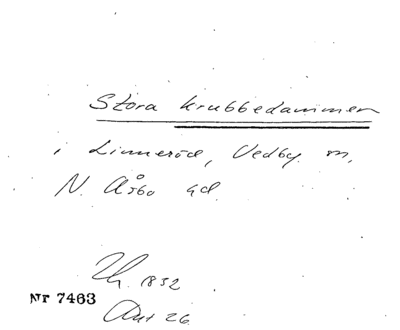 Stora Krubbedammen
i Linneröd, Vedby m,
N. Åsbo hd
1832
Nr 7463
Akt 26